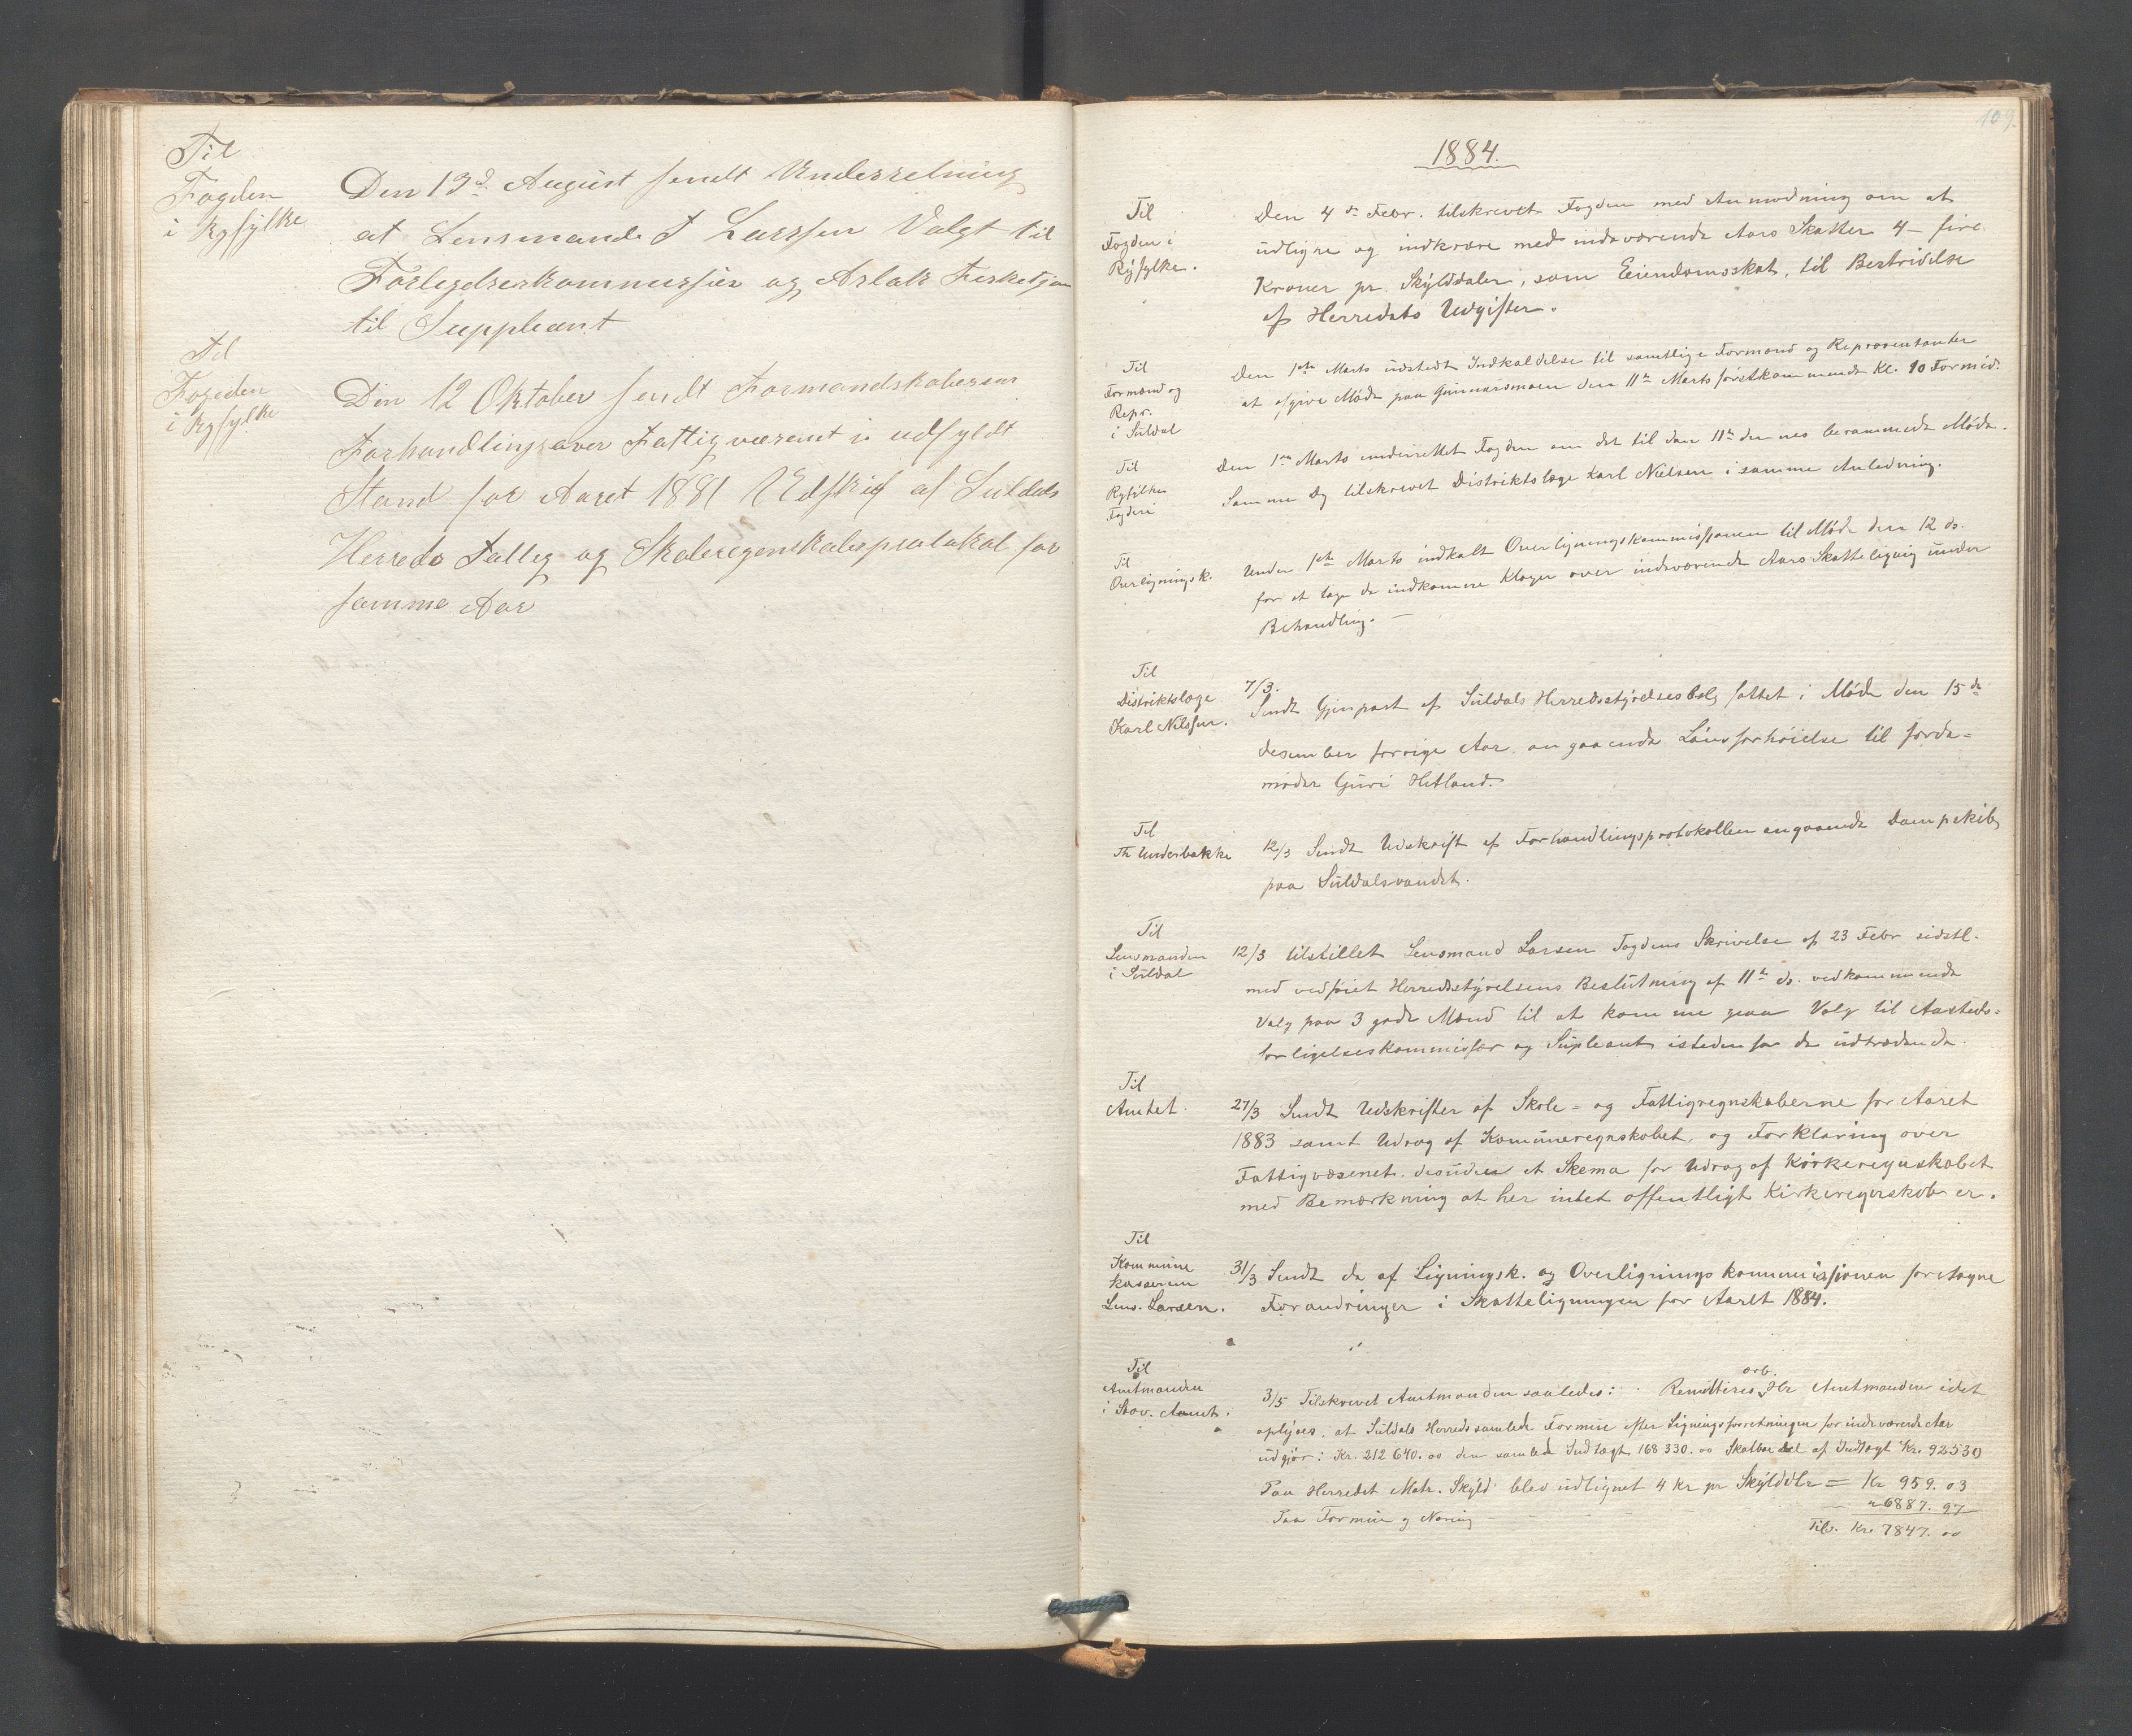 Til
Fogden
i Ryfylke
Den 13d August sendt Underretning
at Lensmande T Larssen Valgt til
Forlegelseskommersjer og Aslak
til Suppleant
Til
Fogeden
i Ryfylke
Den 12 Oktober sendt Formandskabersens
Forhandlings over Fattigvæsenet i udfyldt
Stand for Aaret 1881 Udskrif af Suldals
Herreds Fattig og Skoleregenskabsprotokol for
samme Aar
109.
1884.
Til
Fogden i
Ryfylke.
Den 4de Febr. tilskrevet Fogden med Anmodning om at
udligne og indkræve med indeværende Aars Skatter 4 - fire
Kroner pr. Skylddaler, som Eiendomsskat, til Bestridelse
af Herredets Udgifter.
Til
Formænd og
Repr.
i Suldal
Den 1ste Marts udstedt Indkaldelse til samtlige Formænd og Repræsentanter
at afgive Møde paa Gunnarsmoen den 11te Marts førstkommende Kl. 10 Formid.
Til
Ryfylke
Fogderi
Den 1ste Marts underrettet Fogden om det til den 11te dennes berammede Møde.
Samme Dg tilskrevet Distriktslæge Karl Nielsen i samme Anledning.
Til
Overligningsk.
Under 1ste Marts indkalt Overligningskommissjonen til Møde den 12 ds.
for at tage de indkomne Klager over indeværende Aars Skatteligning under
Behandling. —
Til
Distriktslæge
Karl Nilssen.
7/3.
Sendt Gjenpart af Suldals Herredsstyrelsesbesl. fattet i Møde den 15de
desember forrige Aar, angaaende Lønsforhøielse til Jorde=
moder Guri Hetland.
Til
Th Underbakke
12/3 Sendt Udskrift af Forhandlingsprotokollen angaaende Dampskib
paa Suldalsvandet.
Til
Lensmanden
i Suldal
12/3 tilstillet Lensmand Larsen Fogdens Skrivelse af 23 Febr sidstl.
med vedføiet Herredsstyrelsens Beslutning af 11te ds. vedkommende
Valg paa 3 gode Mænd til at komme paa Valg til Aasteds=
forligelseskommissær og Supleant istedenfor de udtrædende.
Til
Amtet.
27/3 Sendt Udskrifter af Skole= og Fattigregnskaberne for Aaret
1883 samt Udrag af Kommuneregnskabet, og Forklaring over
Fattigvæsenet, desuden et Skema for Udrag af Kirkeregnskabet
med Bemærkning at her intet offentligt Kirkeregnskab er.
Til
Kommune
kasseren
Lens. Larsen.
31/3 Sendt de af Ligningsk. og Overligningskommissjonen foretagne
Forandringer i Skatteligningen for Aaret 1884.
Til
Amtmanden
i Stav. Amt.
3/5 Tilskrevet Amtmanden saaledes: Remitteres
Hr Amtmanden idet
oplyses, at Suldals Herreds samlede Formue efter Ligningsforretningen for indeværende Aar
udgjør: Kr. 212 640.00 den samlede Indtægt 168 330.00 Skatbar del af Indtægt Kr. 92530
Paa Herredet Matr. Skyld blev udlignet 4 Kr pr Skylddlr = Kr 959.03
Paa Formue og Næring — — — " 6887.97
Tils. Kr. 7847.00